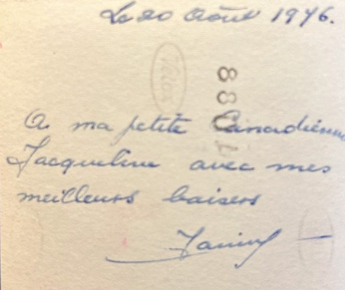 Le 20 Août 1946.
8801
A ma petite Canadienne
Jacqueline avec mes
meilleurs baisers